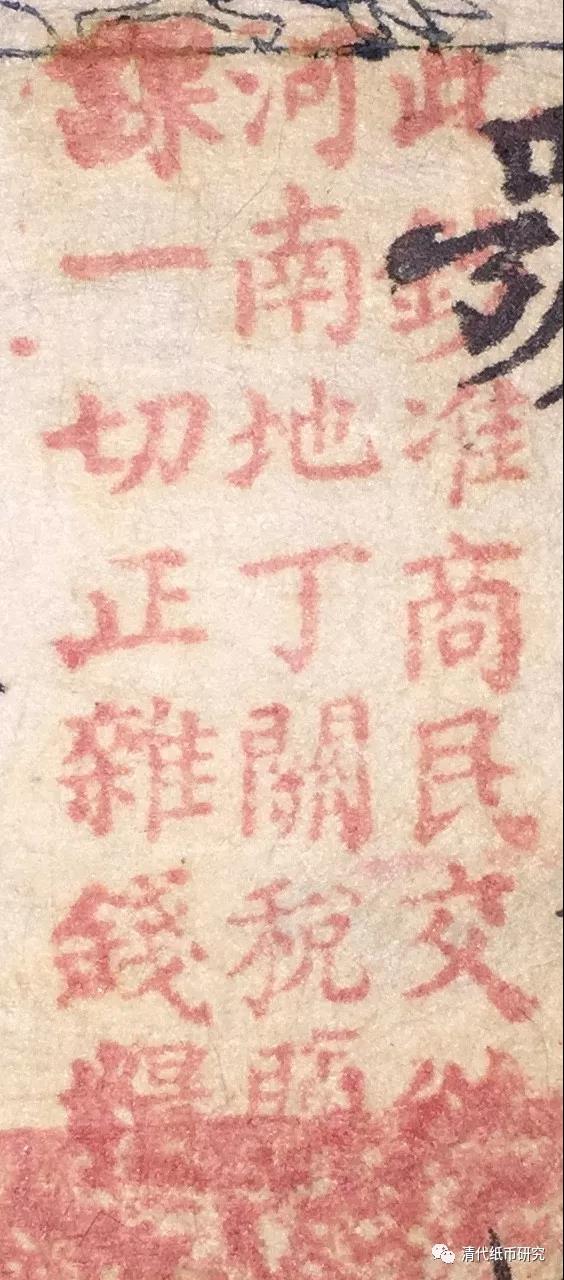 此鈔准商民交
河南地丁關税鹽
課一切正雜錢糧
清代纸币研究